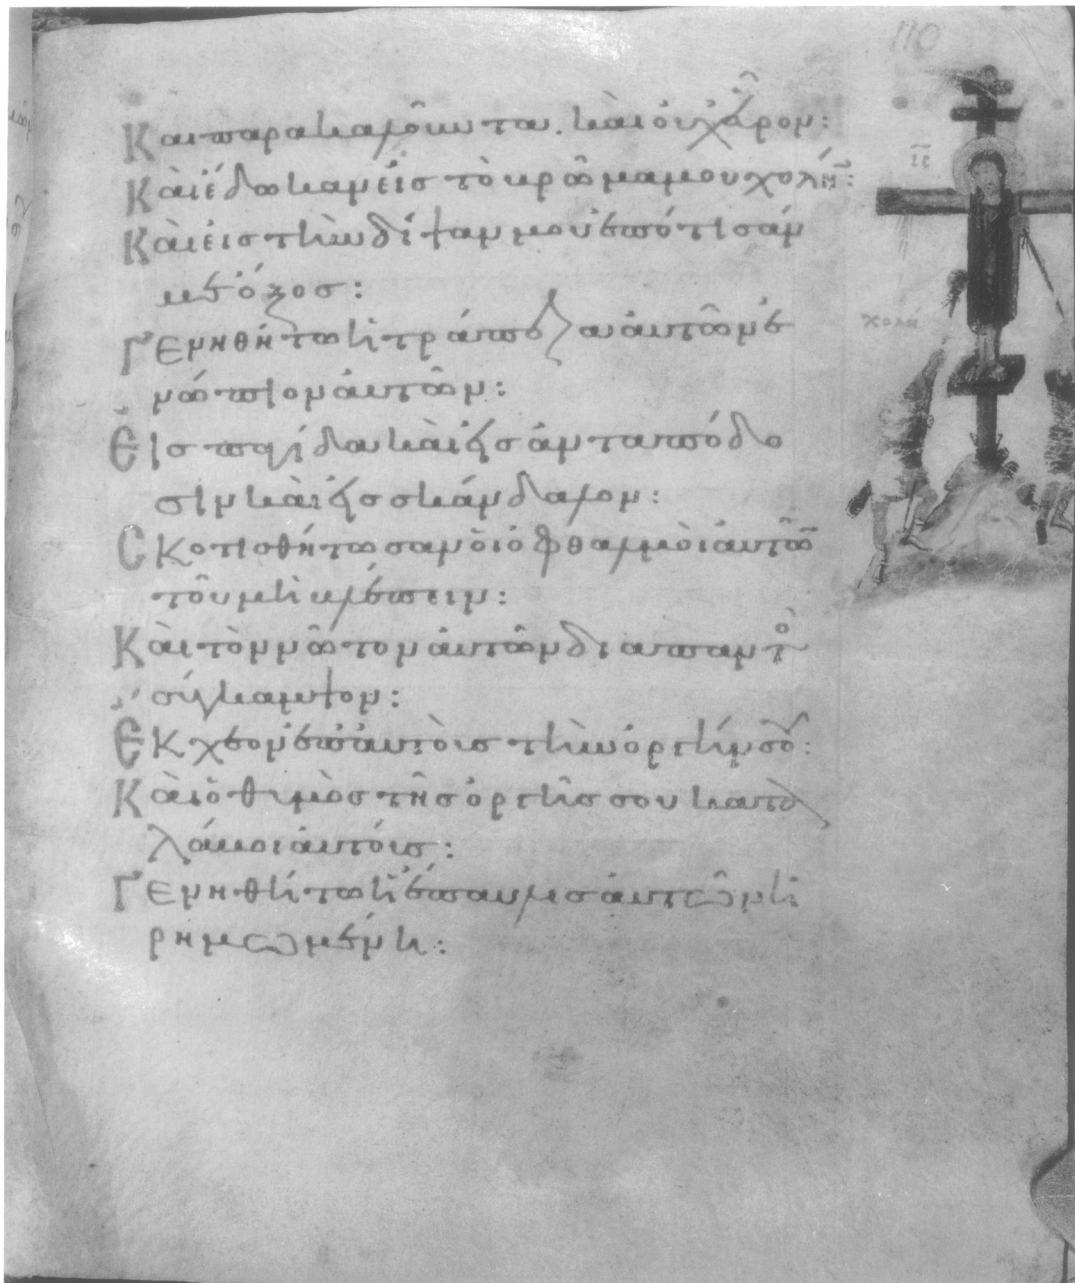 110
Και παρακαλοῦντα. καὶ οὐχ εὗρον:
ις
Καὶ ἔδωκαν εἰς τὸ βρῶμα μου χολήν:
Καὶ εἰς τὴν δίψαν μου ἐπότισάν
με ὄξος:
χολή
Γενηθήτω ἡ τράπεζα αὐτῶν ἐ
νώπιον αὐτῶν:
Εἰς παγίδα καὶ εἰς ἀνταπόδο
σιν καὶ εἰς σκάνδαλον:
Σκοτισθήτωσαν οἱ ὀφθαλμοὶ αὐτῶν
τοῦ μὴ βλέπειν:
Καὶ τὸν νῶτον αὐτῶν διαπαντὸ
σύγκαμψον:
Ἔκχεον ἐπ αὐτοὺς τὴν ὀργήν σου:
Καὶ ὁ θυμὸς τῆς ὀργῆς σου κατα
λάβοι αὐτούς:
Γενηθήτω ἡ ἔπαυλις αὐτῶν ἠ
ρημωμένη: